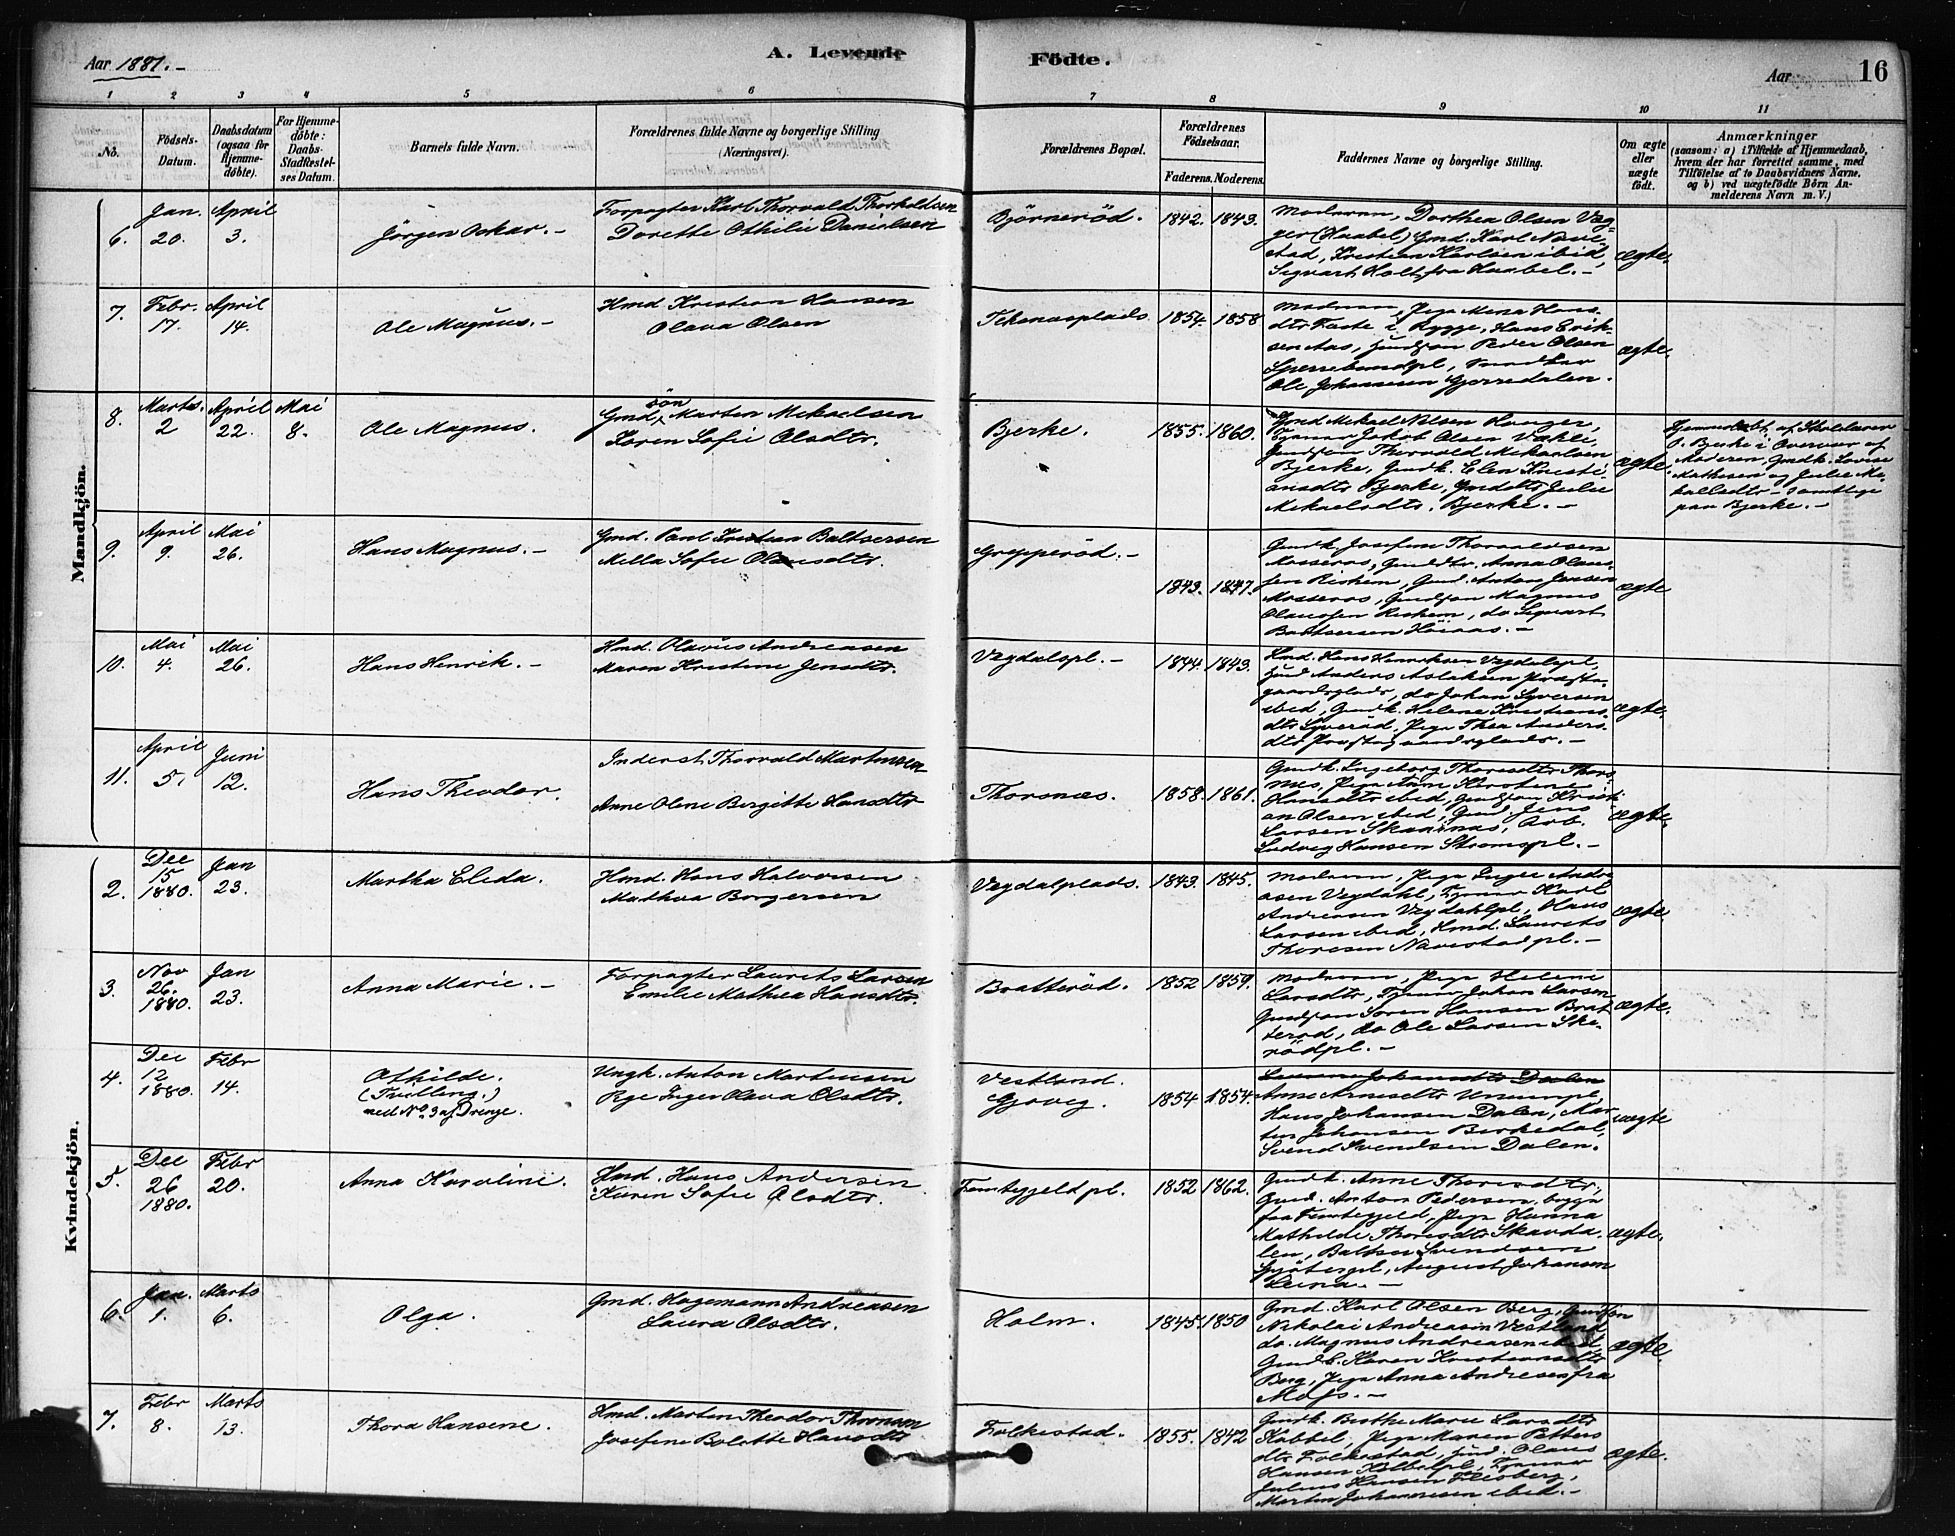 A. Levende Födte.
Aar 1881.-
Aar
16
1 2 3 4 5 6 7 8 9 10 11
No.
Födsels-Datum.
Daabsdatum (ogsaa for Hjemme-döbte).
For Hjemme-döbte: Daabs-Stadfæstel-ses Datum.
Barnets fulde Navn.
Forældrenes fulde Navne og borgerlige Stilling (Næringsvei).
Forældrenes Bopæl.
Forældrenes Födselsaar.
Faderens. Moderens.
Faddernes Navne og borgerlige Stilling.
Om ægte eller uægte födt.
Anmærkninger
(saasom: a) i Tilfælde af Hjemmedaab,
hvem der har forrettet samme, med
Tilföielse af to Daabsvidners Navne,
og b) ved uægtefödte Börn An-
melderens Navn m. V.)
Mandkjön.
6. Jan. 20. April 3. Jörgen Oskar.-
Forpagter Karl Thorvald Thorkeldsen
Dorette Othilie Danielsen
Bjørnerød. 1842. 1843.
Moderen, Dorthea Olsen
(Haabel) Gmd. Karl
stad, Kristian Karlsen ibid,
Sigvart Holt fra Haabel.-
ægte.
7. Febr. 17. April 14. Ole Magnus.-
Hmd. Kristian Hansen
Olava Olsen
1854. 1858
Moderen, Pige Mina Hans
dtr i Rygge, Hans Erik-
sen Aas, Gmdsøn Peder Olsen
Ole Johannesen
ægte.
8. Marts. 2 April 22. Mai 8. Ole Magnus.
Gmd. søn Marten Mikaelsen
Karen Sofie Olsdtr.
Bjerke. 1855. 1860.
Gmd Mikael Nilsen
Jakob Olsen
Gmdsøn Thorvald Mikaelsen
Bjerke, Gmdk. Elen Kristi-
ansdtr Bjerke, Gmddtr Julie
Mikaelsdtr. Bjerke.-
ægte.
Hjemmedøbt af Skolelærer
O. Bjerke i Overvær af
Moderen, Gmdk. Lovise
Mathisen og Julie Mi-
kalsdtr - samtlige
paa Bjerke.-
9. April 9. Mai 26. Hans Magnus.-
Gmd. Paul Kristian Baltsersen
Mella Sofie Olausdtr.
Grepperød.- 1843. 1847.
Gmdk. Josefine Thorvaldsen
Mosseros, Gmddtr. Anna Olaus-
sen, Gmd. Anton Jansen
Mosseros, Gmdsøn Magnus
Olaussen, do Sigvart
Baltsersen Höiaas.-
ægte
10. Mai 4. Mai 26. Hans Henrik.-
Hmd. Olavus Andreasen
Maren Kristine Jensdtr.
Vegdalspl.- 1844. 1843.
Hmd. Hans Henriksen Vegdalspl,
Hmd Anders Aslaksen Præste-
gaardsplads, do Johan Syversen
ibid, Gmdk. Helene Kristians-
dtr, Pige Thea Anders-
dtr Præstegaardsplads.-
ægte.
11. April 5. Juni 12. Hans Theodor.
Inderst Thorvald Martinsen
Anne Oline Bergitte Hansdtr
Thorsnæs. 1858. 1861.
Gmdk. Ingeborg Thoresdtr Thors
næs, Pige Anne Kirstine
Hansdtr ibid, Gmdsøn Kristi-
an Olsen ibid, Gmd Jens
Larsen, Arb.
Ludvig Hansen Strømspl.-
ægte.
Kvindekjön.
2. Dec 15 1880. Jan 23. Martha Elida.
Hmd. Hans Halvorsen
Mathea Borgersen
Vegdalplads. 1843. 1845.
Moderen, Pige Inger Andre
asen Vegdahl, Karl
Andreasen Vegdahlpl, Olaus
Larsen ibid, Hmd. Laurits
Thoresen Navestadpl.-
ægte
3. Nov 26. 1880. Jan 23. Anna Marie.-
Forpagter Laurits Larsen
Emilie Mathea Hansdtr.
Bratterød. 1852 1859.
Moderen, Pige Helene
Larsdtr, Johan Larsen
Gmdsøn Søren Hansen Brat
terød, do Ole Larsen Ske-
rödpl.-
ægte.
4. Dec 12 1880. Febr 14. Othilde. (Tvilling.) med No 3 af Drenge.
Ungk. Anton Martinsen
Pge Inger Olava Olsdtr.
Vestland. Gjøvig. 1854 1854.
Johansdtr Dalen
Anne Arnesdtr
Hans Johansen Dalen, Mar
tin Johansen Birkedal,
Svend Svendsen Dalen.
uægte
5. Dec 26 1880. Febr 20. Anna Karoline.
Hmd. Hans Andersen
Karen Sofie Olsdtr.
Femtegjeldpl. 1852 1862.
Gmdk. Anne Thoresdtr,
Gmd. Anton Pedersen, begge
fra Femtegjeld, Pige Hanna
Mathilde Thoresdtr Skavda-
len, Baltser Svendsen
August Johansen
ægte.
6. Jan. 1. Marts 6. Olga.
Gmd. Hagemann Andreasen
Laura Olsdtr.
Holm. 1845. 1850
Gmd. Karl Olsen Berg, Gmdsøn
Nikolai Andreasen Vestland,
do. Magnus Andreasen ibid,
Gmdk. Karen Kristiansdtr
Berg, Pige Anna Andresen fra
Moss.-
ægte.
7. Febr 8. Marts 13. Thora Hansine.
Hmd. Marten Theodor Thoresen
Josefine Bolette Hansdtr
Folkestad. 1855. 1842
Gmdk. Berthe Marie Larsdtr
Kabbel, Pige Maren Petters
dtr Folkestad, Hmd. Olaus
Hansen
Julius Hansen
Martin Johannesen ibid.-
ægte.